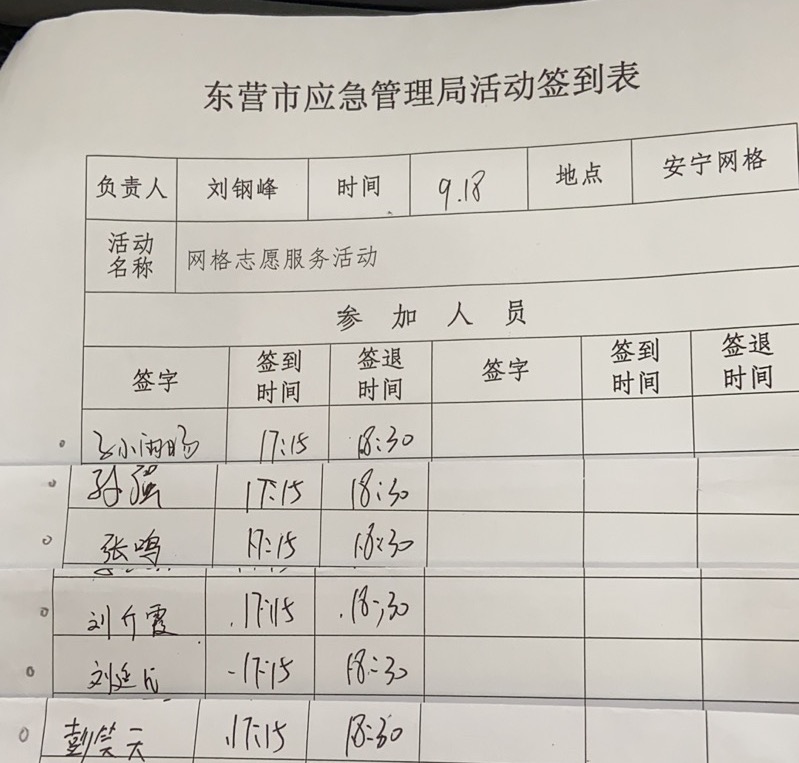 东营市应急管理局活动签到表
负责人 刘钢峰 时间 9.18 地点 安宁网格
活动名称 网格志愿服务活动
参加人员
签字 签到时间 签退时间 签字 签到时间 签退时间
17:15 18:30
孙强 17:15 18:30
张鸣 17:15 18:30
刘介霞 17:15 18:30
刘廷 17:15 18:30
彭笑天 17:15 18:30